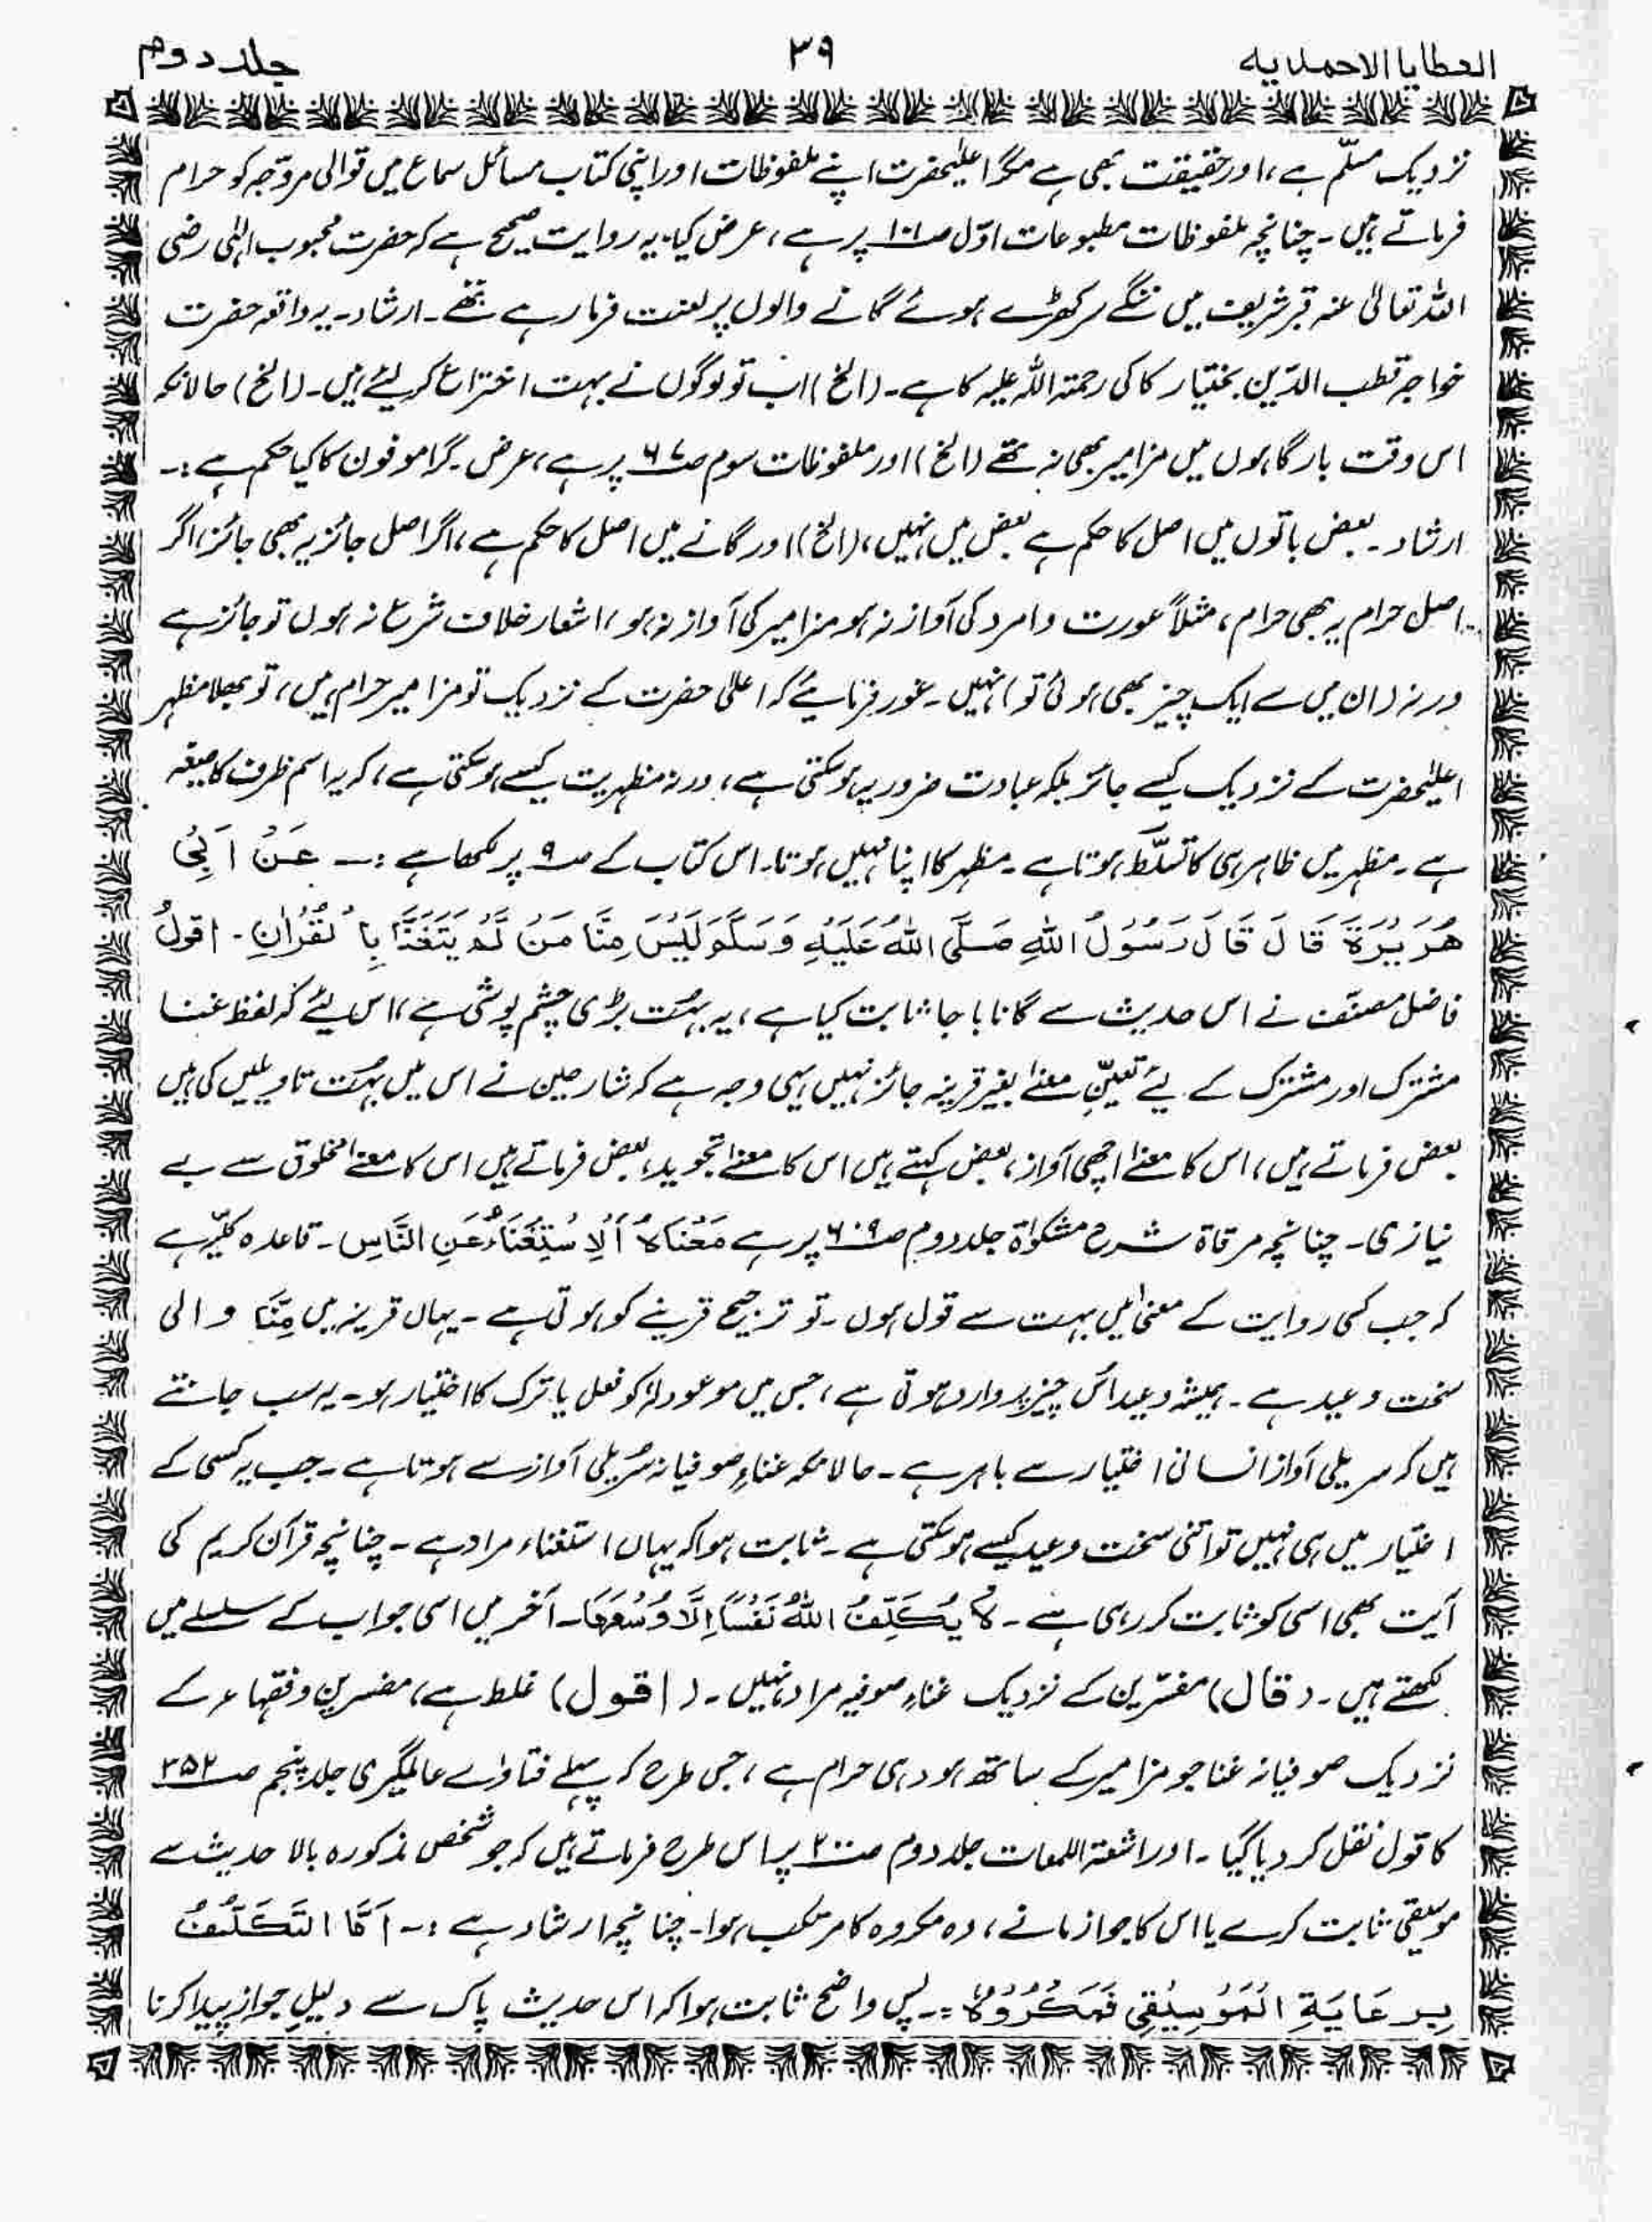 العطایا الاحمدیه ۳۹ جلد دوم
نزدیک مسلّم ہے، اور حقیقت بھی ہے مگر اعلیٰحضرت اپنے ملفوظات اور اپنی کتاب مسائل سماع میں قوالی مروّجہ کو حرام
فرماتے ہیں۔ چنانچہ ملفوظات مطبوعات اوّل صـ۱۰۱ پر ہے، عرض کیا۔ یہ روایت صحیح ہے کہ حضرت محبوب الٰہی رضی
اللہ تعالیٰ عنہ قبر شریف میں ننگے سر کھڑے ہوئے گانے والوں پر لعنت فرما رہے تھے۔ ارشاد۔ یہ واقعہ حضرت
خواجہ قطب الدّین بختیار کاکی رحمۃ اللہ علیہ کا ہے۔ (الخ) اب تو لوگوں نے بہت اختراع کر لیئے ہیں۔ (الخ) حالانکہ
اس وقت بارگاہوں میں مزامیر بھی نہ تھے (الخ) اور ملفوظات سوم صـ۶۷ پر ہے، عرض۔ گراموفون کا کیا حکم ہے :۔
ارشاد۔ بعض باتوں میں اصل کا حکم ہے بعض میں نہیں، (الخ) اور گانے میں اصل کا حکم ہے، اگر اصل جائز یہ بھی جائز، اگر
اصل حرام یہ بھی حرام، مثلاً عورت و امرد کی آواز نہ ہو مزامیر کی آواز نہ ہو، اشعار خلاف شرع نہ ہوں تو جائز ہے
ورنہ (ان میں سے ایک چیز بھی ہوئی تو) نہیں۔ غور فرمایئے کہ اعلیٰ حضرت کے نزدیک تو مزامیر حرام ہیں، تو بھلا مظہر
اعلیٰحضرت کے نزدیک کیسے جائز بلکہ عبادت ضروریہ ہو سکتی ہے، ورنہ مظہریت کیسے ہو سکتی ہے، کہ یہ اسم ظرف کا صیغہ
ہے۔ مظہر میں ظاہر ہی کا تسلّط ہوتا ہے۔ مظہر کا اپنا نہیں ہوتا۔ اس کتاب کے صـ۹ پر لکھا ہے :۔ عَنْ اَبِیْ
هُرَیْرَةَ قَالَ قَالَ رَسُوْلُ اللهِ صَلَّی اللهُ عَلَیْهِ وَسَلَّمَ لَیْسَ مِنَّا مَنْ لَّمْ یَتَغَنَّ بِالْقُرْاٰنِ۔ اقولُ
فاضل مصنّف نے اس حدیث سے گانا باجا ثابت کیا ہے، یہ بہُت بڑی چشم پوشی ہے، اس لیئے کہ لفظ غنا
مشترک اور مشترک کے لیئے تعیّنِ معنٰے بغیر قرینہ جائز نہیں یہی وجہ ہے کہ شارحین نے اس میں بہُت تاویلیں کی ہیں
بعض فرماتے ہیں، اس کا معنٰے اچھی آواز، بعض کہتے ہیں اس کا معنٰے تجوید، بعض فرماتے ہیں اس کا معنٰے مخلوق سے بے
نیازی۔ چنانچہ مرقاۃ شرح مشکوٰۃ جلد دوم صـ۶۰۹ پر ہے مَعْنَاهُ اَلْاِسْتِغْنَاءُ عَنِ النَّاسِ۔ قاعدہ کلیّہ ہے
کہ جب کسی روایت کے معنٰی میں بہت سے قول ہوں۔ تو ترجیح قرینے کو ہوتی ہے۔ یہاں قرینہ میں مِنَّا والی
سخت وعید ہے۔ ہمیشہ وعید اُس چیز پر وارد ہوتی ہے، جس میں موعود لہٗ کو فعل یا ترک کا اختیار ہو۔ یہ سب جانتے
ہیں کہ سریلی آواز انسانی اختیار سے باہر ہے۔ حالانکہ غناءِ صوفیانہ سُریلی آواز سے ہوتا ہے۔ جب یہ کسی کے
اختیار میں ہی نہیں تو اتنی سخت وعید کیسے ہو سکتی ہے۔ ثابت ہوا کہ یہاں استغناء مراد ہے۔ چنانچہ قرآن کریم کی
آیت بھی اسی کو ثابت کر رہی ہے۔ لَا یُکَلِّفُ اللهُ نَفْسًا اِلَّا وُسْعَهَا۔ آخر میں اسی جواب کے سلسلے میں
لکھتے ہیں۔ (قال) مفسّرین کے نزدیک غناءِ صوفیہ مراد نہیں۔ (اقول) غلط ہے، مفسرین و فقہاء کے
نزدیک صوفیانہ غنا جو مزامیر کے ساتھ ہو وہی حرام ہے، جس طرح کہ پہلے فتاوٰے عالمگیری جلد پنجم صـ۳۵۲
کا قول نقل کر دیا گیا۔ اور اشعۃ اللمعات جلد دوم صـ۲۰۰ پر اس طرح فرماتے ہیں کہ جو شخص مذکورہ بالا حدیث سے
موسیقی ثابت کرے یا اس کا جواز مانے، وہ مکروہ کا مرتکب ہوا۔ چنانچہ ارشاد ہے :۔ اَمَّا التَّکَلُّفُ
بِرِعَایَةِ الْمَوْسِیْقِی فَمَکْرُوْهٌ =۔ پس واضح ثابت ہوا کہ اس حدیث پاک سے دلیلِ جواز پیدا کرنا